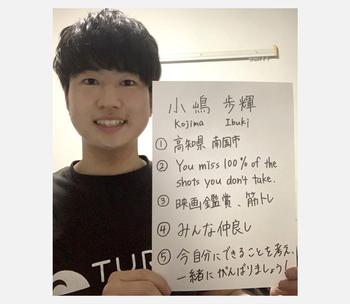 小嶋 歩輝
Kojima Ibuki
① 高知県 南国市
② You miss 100% of the
shots you don't take.
③ 映画鑑賞、筋トレ
④ みんな仲良し
⑤ 今自分にできることを考え、
一緒にがんばりましょう!